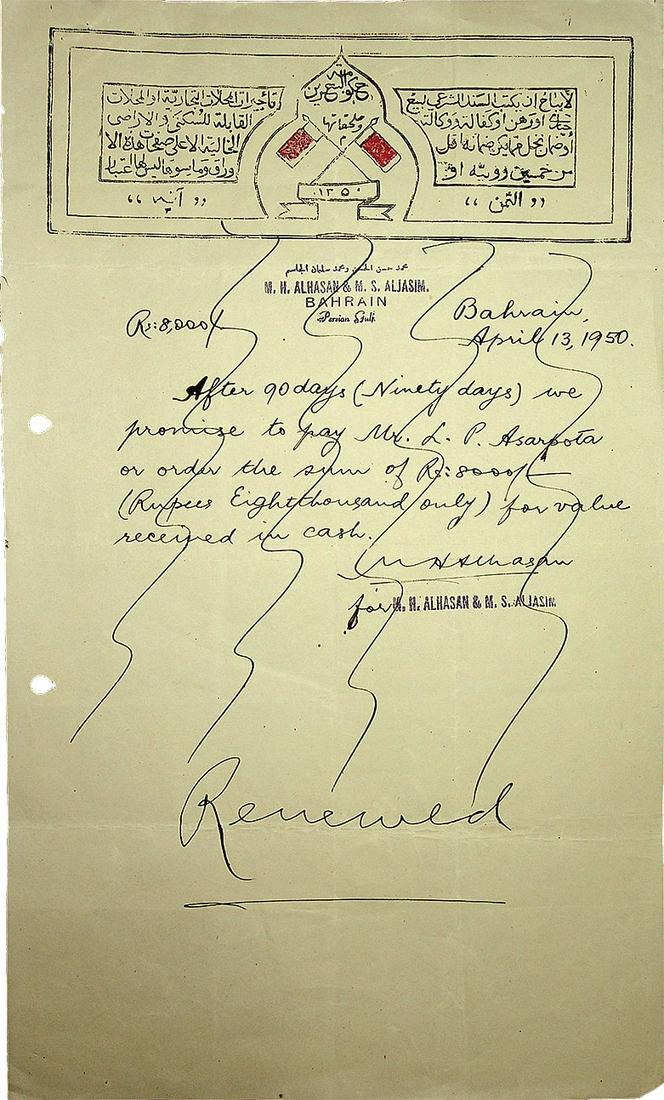 حكومة
البحرين
وملحقاتها
١٣٥٠
لايباح ان يكتب السند الشرعي لبيع
اورهن اوكفالة ووكالة
اوضمان نخل فيما يكن ضمانه اقل
من خمسين روبيه او
،، الثمن ،،
وتأجيرات المحلات التجارية او المحلات
القابلة للسكنى والاراضى
الخالية الا على صفحات هذه الا
وراق وما سوها ليس لها اعتبار
،، آنه ،،
محمد حسن الحسن ومحمد سلمان الجاسم
M. H. ALHASAN & M. S. ALJASIM.
BAHRAIN
Persian Gulf.
Rs:8,000/-
Bahrain,
April 13, 1950.
After 90 days (Ninety days) we
promise to pay Mr. L. P. Asarpota
or order the sum of Rs:8000/-
(Rupees Eight thousand only) for value
received in cash.
M H Alhasan
for M. H. ALHASAN & M. S. ALJASIM
Renewed